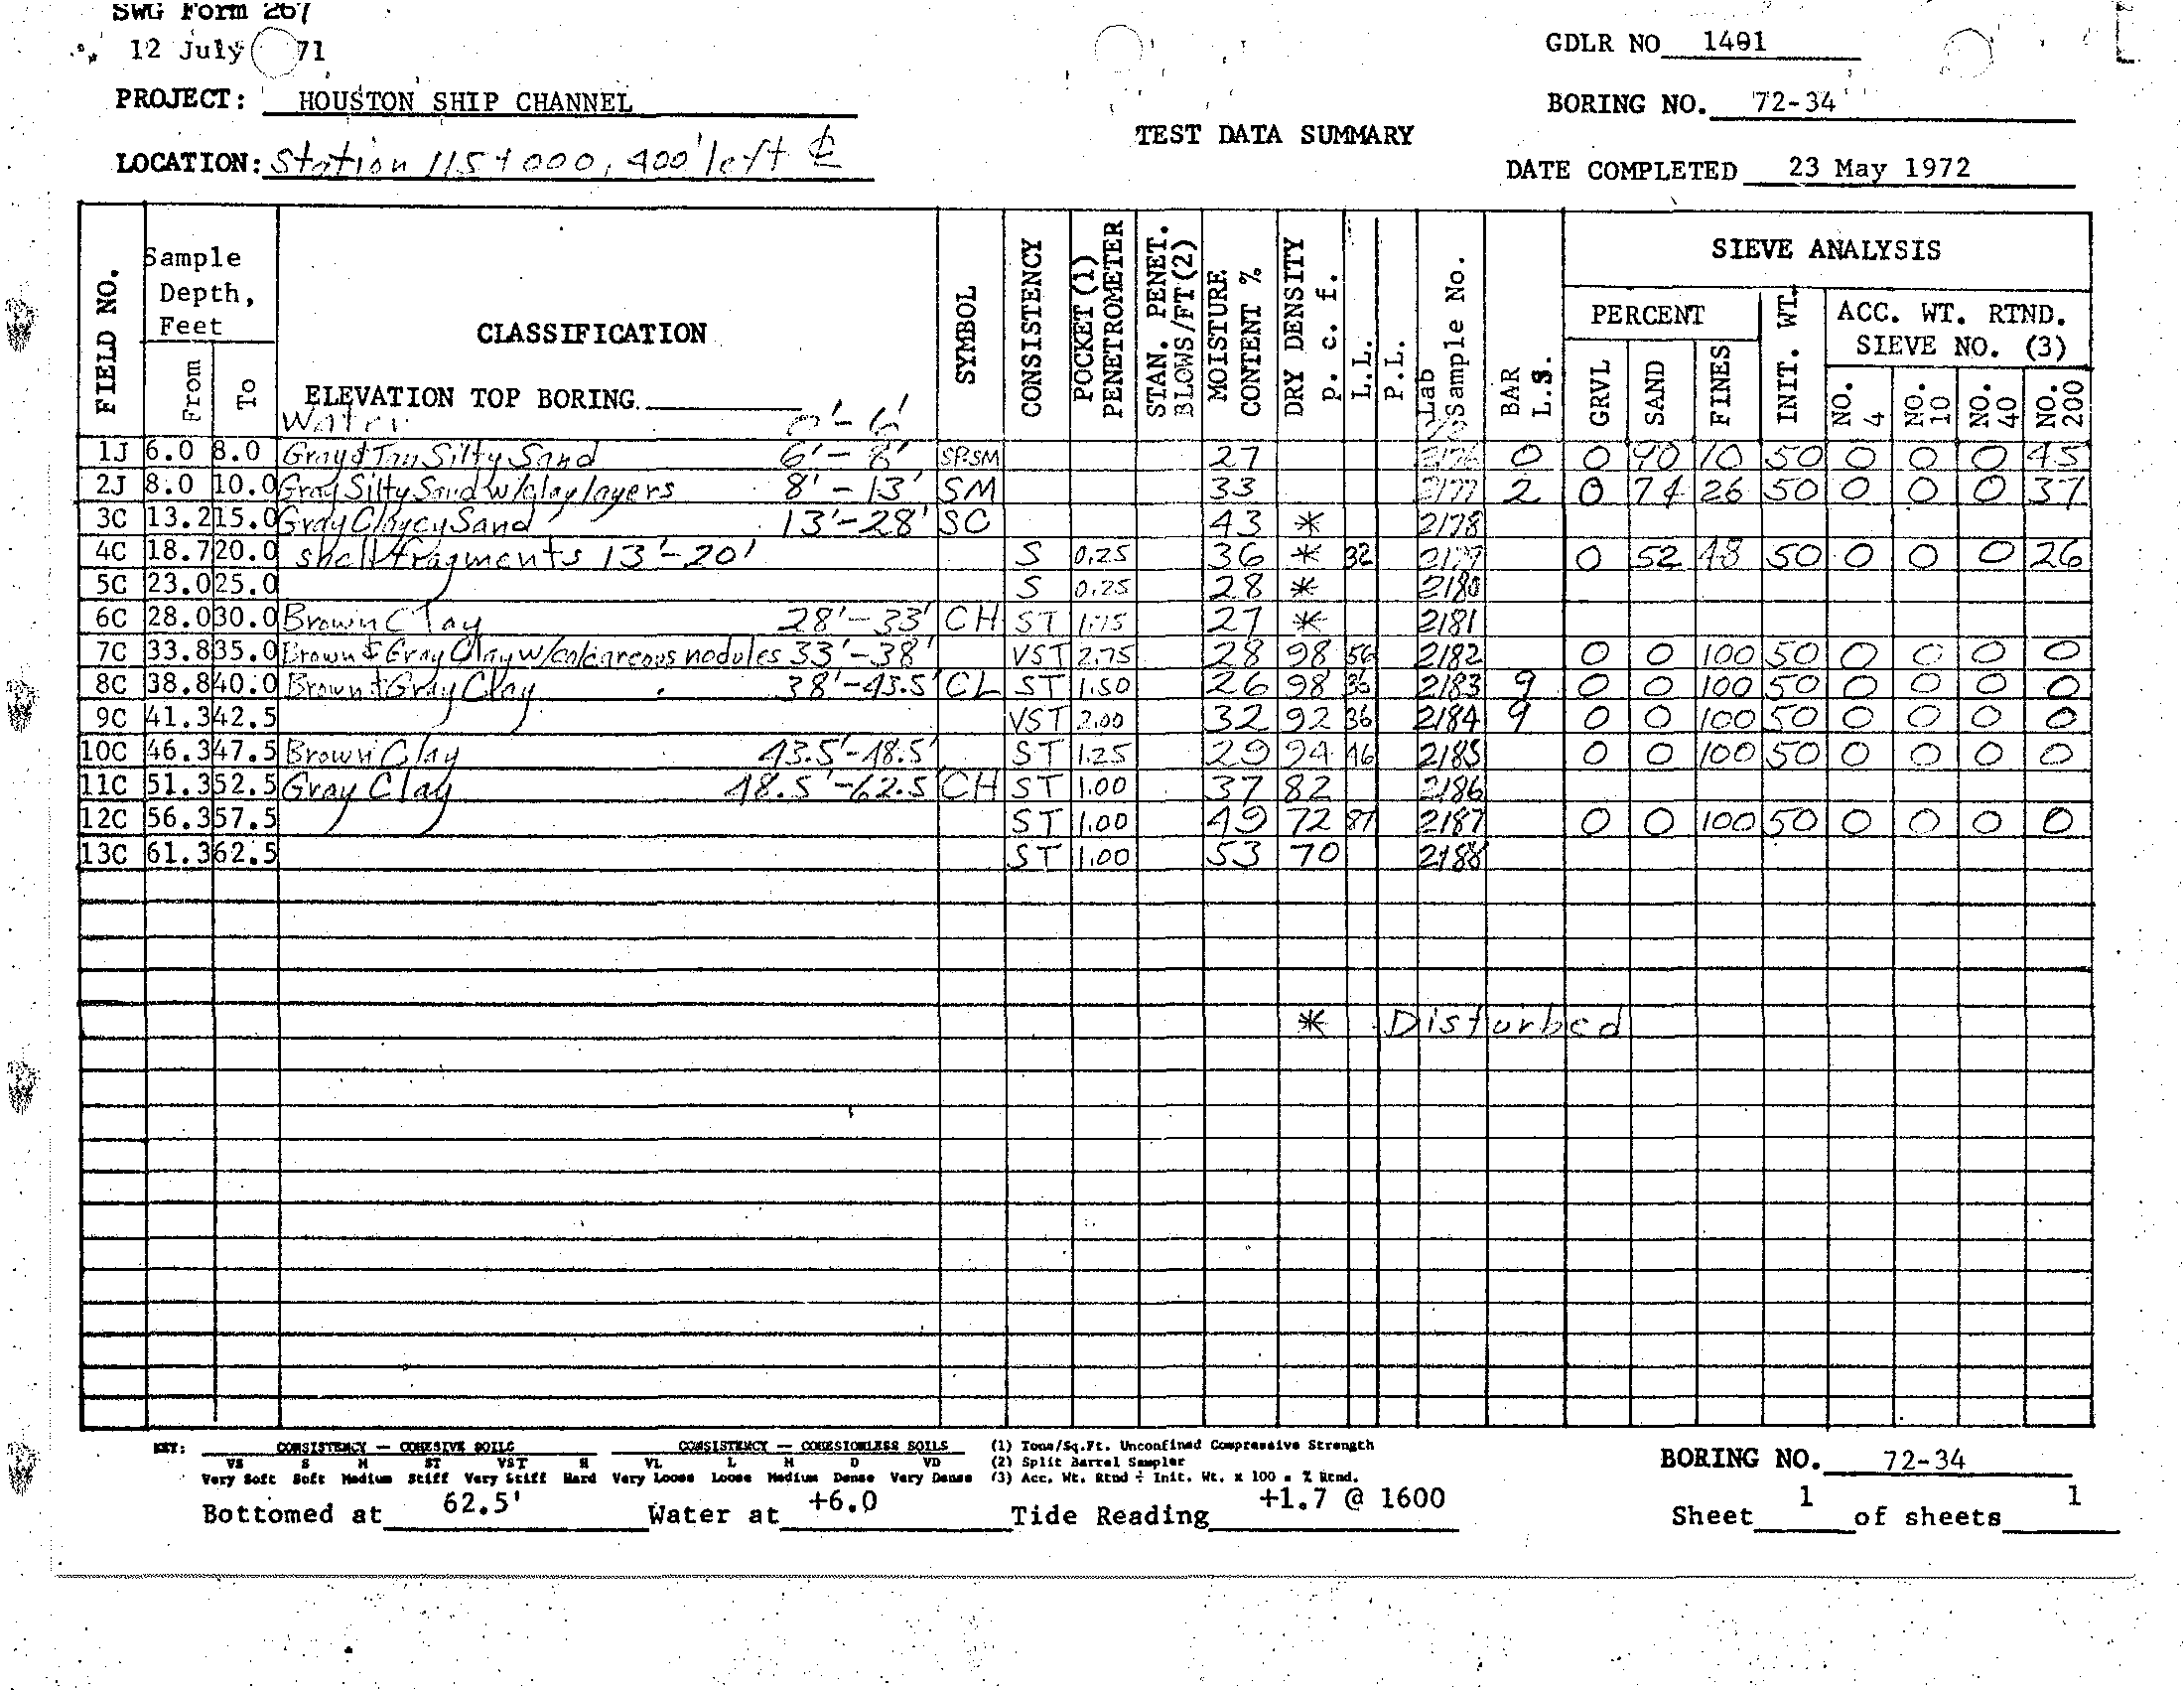 SWG Form 267
12 July 71
GDLR NO 1491
PROJECT: HOUSTON SHIP CHANNEL
BORING NO. 72-34
TEST DATA SUMMARY
LOCATION: Station 115+000, 400' left ℄
DATE COMPLETED 23 May 1972
FIELD NO. Sample Depth, Feet From To CLASSIFICATION ELEVATION TOP BORING SYMBOL CONSISTENCY POCKET (1) PENETROMETER STAN. PENET. BLOWS/FT (2) MOISTURE CONTENT % DRY DENSITY p. c. f. L.L. P.L. Lab Sample No. BAR L.S. SIEVE ANALYSIS PERCENT GRVL SAND FINES INIT. WT. ACC. WT. RTND. SIEVE NO. (3) NO. 4 NO. 10 NO. 40 NO. 200
Water 0'-6'
1J 6.0 8.0 Gray & Tan Silty Sand 6'-8' SP-SM 27 2176 0 0 90 10 50 0 0 0 45
2J 8.0 10.0 Gray Silty Sand w/clay layers 8'-13' SM 33 2177 2 0 74 26 50 0 0 0 37
3C 13.2 15.0 Gray Clayey Sand 13'-28' SC 43 * 2178
4C 18.7 20.0 shell fragments 13'-20' S 0.25 36 * 32 2179 0 52 48 50 0 0 0 26
5C 23.0 25.0 S 0.25 28 * 2180
6C 28.0 30.0 Brown Clay 28'-33' CH ST 1.75 27 * 2181
7C 33.8 35.0 Brown & Gray Clay w/calcareous nodules 33'-38' VST 2.75 28 98 56 2182 0 0 100 50 0 0 0 0
8C 38.8 40.0 Brown & Gray Clay 38'-43.5' CL ST 1.50 26 98 36 2183 9 0 0 100 50 0 0 0 0
9C 41.3 42.5 VST 2.00 32 92 36 2184 9 0 0 100 50 0 0 0 0
10C 46.3 47.5 Brown Clay 43.5'-48.5' ST 1.25 29 94 46 2185 0 0 100 50 0 0 0 0
11C 51.3 52.5 Gray Clay 48.5'-62.5' CH ST 1.00 37 82 2186
12C 56.3 57.5 ST 1.00 49 72 87 2187 0 0 100 50 0 0 0 0
13C 61.3 62.5 ST 1.00 53 70 2188
* Disturbed
KEY: CONSISTENCY — COHESIVE SOILS CONSISTENCY — COHESIONLESS SOILS (1) Tons/Sq.Ft. Unconfined Compressive Strength
VS S M ST VST H VL L M D VD (2) Split Barrel Sampler
Very Soft Soft Medium Stiff Very Stiff Hard Very Loose Loose Medium Dense Very Dense (3) Acc. Wt. Rtnd ÷ Init. Wt. x 100 = % Rtnd.
BORING NO. 72-34
Bottomed at 62.5' Water at +6.0 Tide Reading +1.7 @ 1600
Sheet 1 of sheets 1